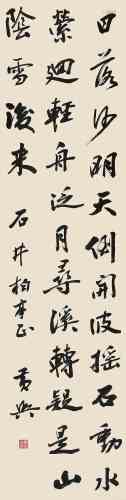 日落沙明天倒開波搖石動水
縈迴輕舟泛月尋溪轉疑是山
陰雪後来
石井柏亭正
黃興